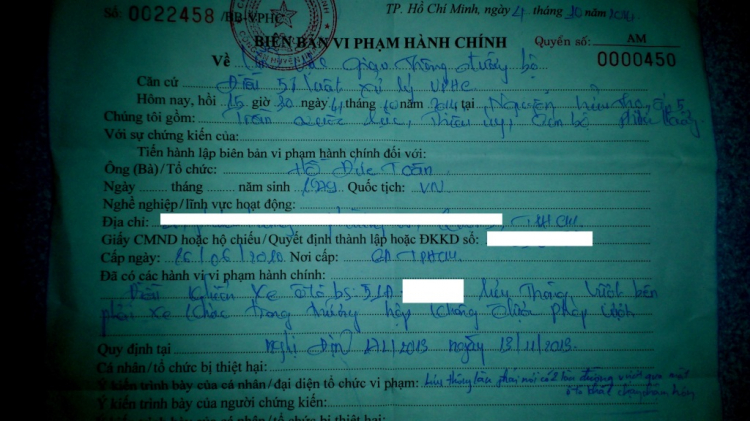 Số: 0022458 /BB-VPHC
TP. Hồ Chí Minh, ngày 4 tháng 10 năm 2014
BIÊN BẢN VI PHẠM HÀNH CHÍNH
Quyển số: AM
0000450
Về giao thông đường bộ
Căn cứ Điều 51 luật xử lý VPHC
Hôm nay, hồi 15 giờ 30 ngày 4 tháng 10 năm 2014 tại Nguyễn Hữu Thọ
Chúng tôi gồm: Trần Quốc thiếu úy, Cán bộ
Với sự chứng kiến của:
Tiến hành lập biên bản vi phạm hành chính đối với:
Ông (Bà)/Tổ chức: Hồ Đức Toàn
Ngày tháng năm sinh 1979 Quốc tịch: VN
Nghề nghiệp/lĩnh vực hoạt động:
Địa chỉ: TPHCM
Giấy CMND hoặc hộ chiếu/Quyết định thành lập hoặc ĐKKD số:
Cấp ngày: 26/06/2010 Nơi cấp: CA TPHCM
Đã có các hành vi vi phạm hành chính:
Điều khiển xe ôtô bs: 51A- lưu thông vượt bên
phải xe khác trong trường hợp không được phép
Quy định tại Nghị Định 171/2013 ngày 13/11/2013
Cá nhân/tổ chức bị thiệt hại:
Ý kiến trình bày của cá nhân/đại diện tổ chức vi phạm: lưu thông làn phải
Ý kiến trình bày của người chứng kiến:
Ý kiến trình bày của cá nhân/tổ chức bị thiệt hại: